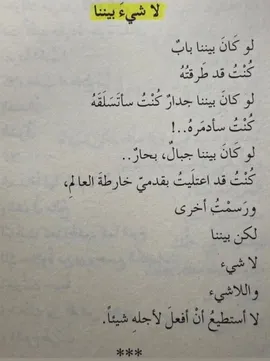 لا شيءَ بيننا
لو كَانَ بيننا بابٌ
كُنْتُ قد طَرقتُهُ
لو كَانَ بيننا جدارٌ كُنْتُ سأتَسَلَقَهُ
كُنْتُ سأدمَرهُ..!
لو كَانَ بيننا جبالٌ، بحارٌ..
كُنْتُ قد اعتلَيتُ بقدميّ خارطةَ العالمِ،
ورَسمْتُ أخرى
لكن بيننا
لا شيء
واللاشيء
لا أستطيعُ أنْ أفعلَ لأجلهِ شيئاً.
***